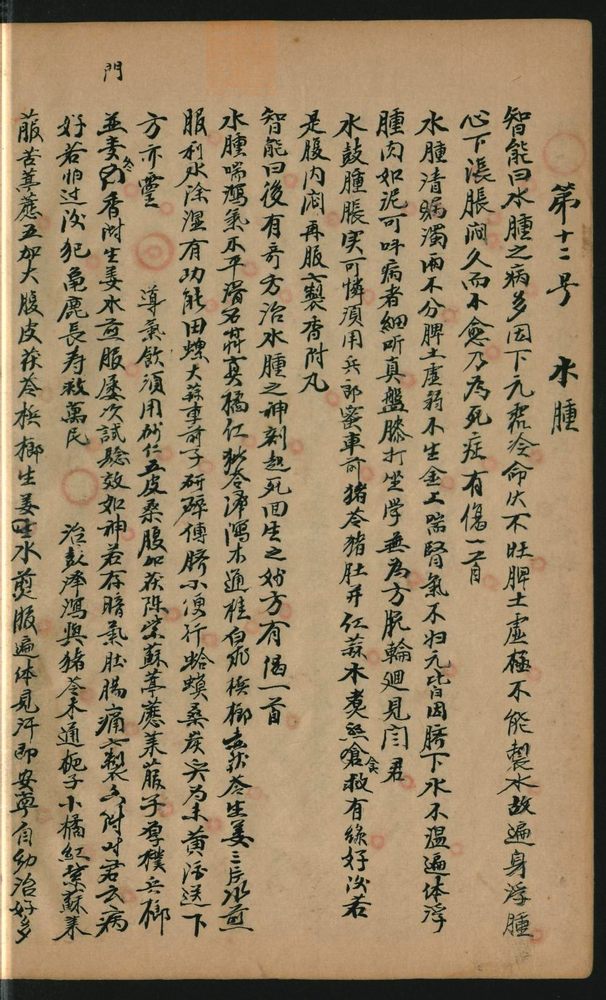 第十二号　水腫
智能曰水腫之病多因下元虛冷命火不旺脾土虛極不能製水故遍身浮腫
心下漲脹悶久而不愈乃為死症有偈一首
水腫清瞩濁雨不分脾土虛弱不生金上喘腎氣不归元皆因臍下水不溫遍体浮
腫肉如泥可吁病者細听真盤膝打坐學無為方脫輪廻見闫君
水鼓腫脹实可憐須用兵郎蜜車前猪苓猪肚并仁蒜木煑熟噙食救有綠好後若
是腹内悶再服六製香附丸
智能曰後有奇方治水腫之神刻起死回生之妙方有偈一首
水腫喘瀉氣不平滑石茯真橘仁猪苓澤瀉木通桂白飛梹榔去茯苓生姜三片水煎
服利水除湿有功能田螺大蒜車前子研碎傅臍小便行蛤蟆桑炭灾為末黄酒送下
方亦靈　導氣飲須用砂仁五皮桑腹加茯陈紫蘇葶藶莱菔子厚樸兵榔
並麦冬香附生姜水煎服屡次試驗效如神若存暗氣肚腸痛六製香附吋君云病
好若怕过後犯龜鹿長寿救萬民　治彭澤瀉與猪苓木通梔子小橘紅紫蘇莱
菔苦葶藶五加大腹皮茯苓梹榔生姜生水煎服遍体見汗即安寧自幼治好多
門